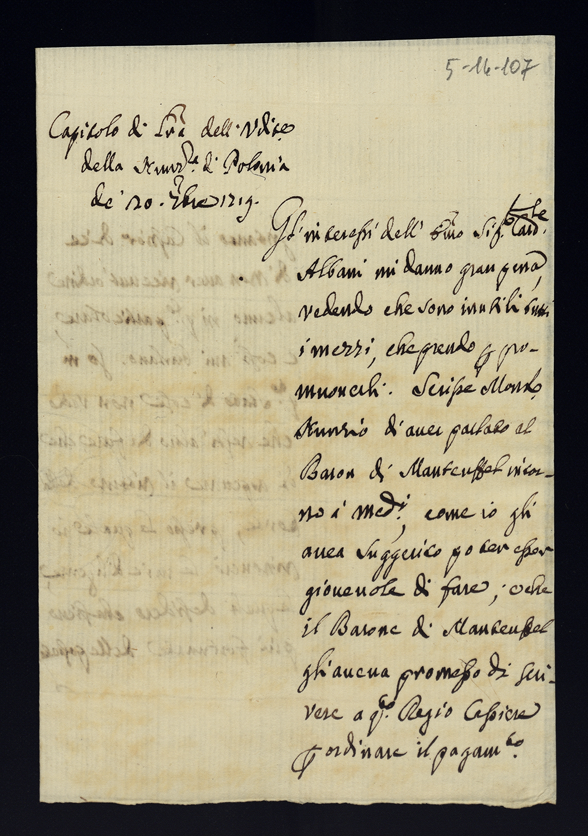 5-16-107
Capitolo di Lrã dell'Udite
della Nunz.ra di Polonia
de' 20. Xbre 1719.
Gl'interessi dell' Emo Sig.r Card.
Albani mi danno gran pena,
vedendo che sono inutili tutti
i mezzi, che prendo p pro-
muoverli. Scrisse Mons.
Nunzio di aver parlato al
Baron di Manteuffel intor-
no i med.i, come io gli
avea suggerito poter esser
giovevole di fare; e che
il Barone di Manteuffel
gli aveva promesso di scri-
vere a q.o Regio Cassiere
p ordinare il pagam.to